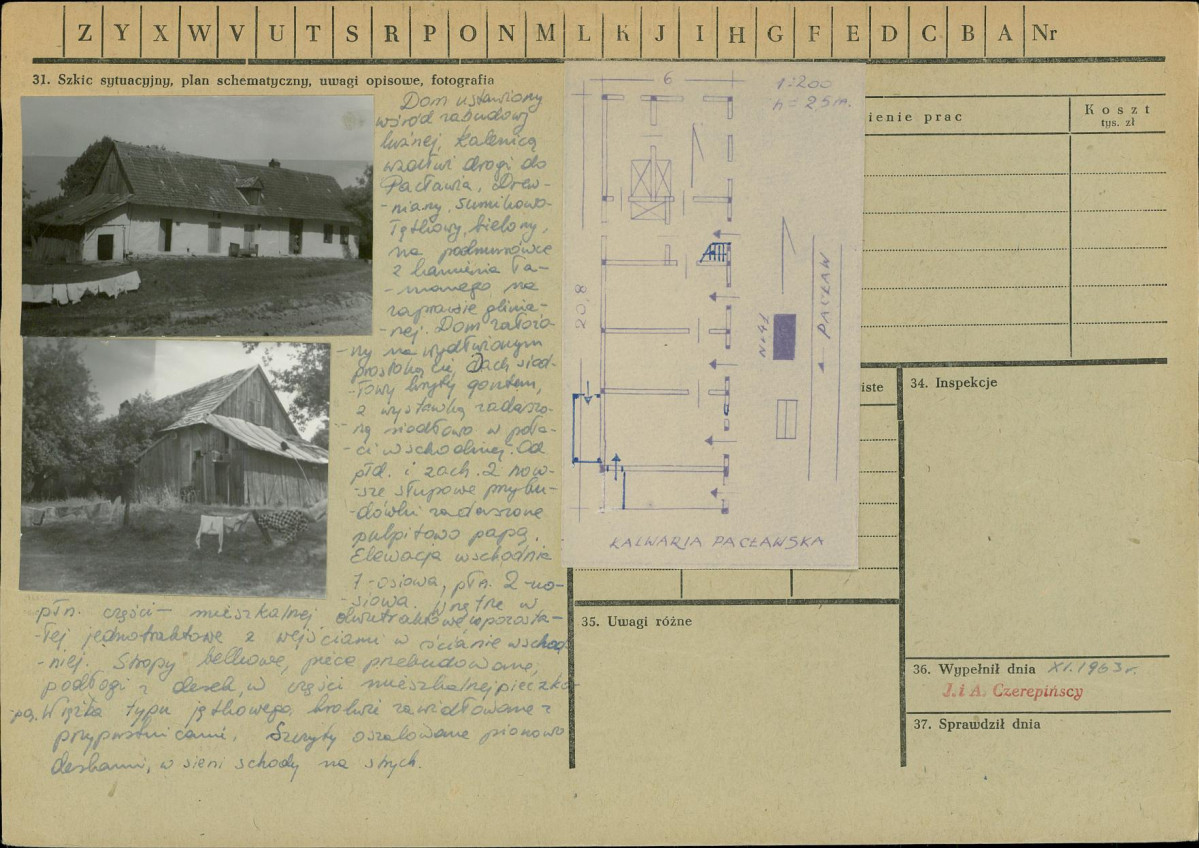 Z Y X W V U T S R P O N M L K J I H G F E D C B A Nr
31. Szkic sytuacyjny, plan schematyczny, uwagi opisowe, fotografia
Dom ustawiony
wśród zabudowy
luźnej, kalenicą
wzdłuż drogi do
Pacławia. Drew-
-niany, sumikowo-
łątkowy, bielony,
na podmurówce
z kamienia ła-
-manego na
zaprawie glinia-
-nej. Dom założo-
-ny na wydłużonym
prostokącie, Dach siod-
-łowy kryty gontem,
z wystawką zadaszo-
-ną siodłowo w poła-
-ci wschodniej. Od
płd. i zach. 2 now-
-sze słupowe przybu-
-dówki zadaszone
pulpitowo papą.
Elewacja wschodnia
7-osiowa, płn. 2-uo-
-siowa. Wnętrze w
płn. części mieszkalnej dwutraktowe w pozosta-
-łej jednotraktowe z wejściami w ścianie wschod-
-niej. Stropy belkowe, piece przebudowane,
podłogi z desek, w części mieszkalnej pieczka-
-pa. Więźba typu jętkowego, krokwie zawidłowane z
przypustnicami. Szczyty oszalowane pionowo
deskami, w sieni schody na strych.
6
1:200
h = 2,5 m.
20,8
Nr 41
PACŁAW
KALWARIA PACŁAWSKA
ienie prac
Koszt
tys. zł
iste
34. Inspekcje
35. Uwagi różne
36. Wypełnił dnia XI.1963 r.
J. i A. Czerepińscy
37. Sprawdził dnia